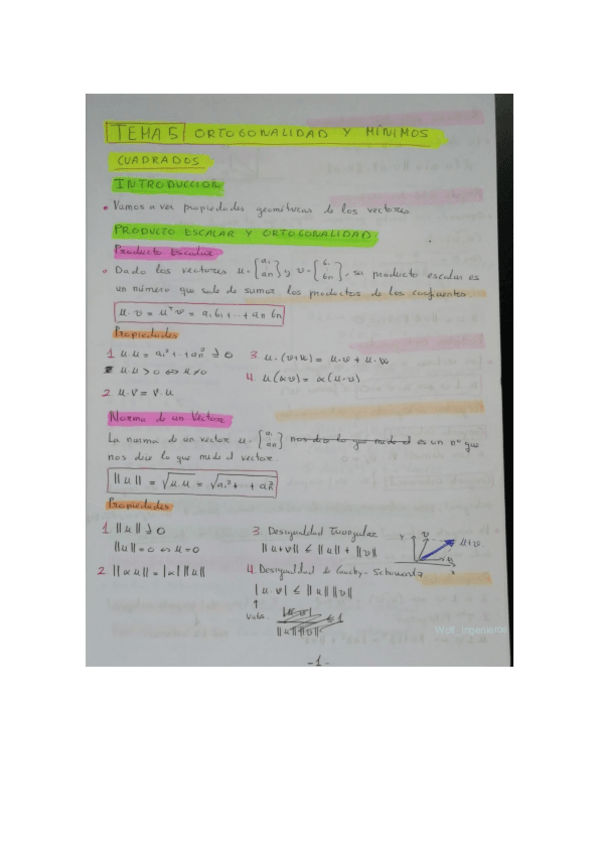 TEMA 5 ORTOGONALIDAD Y MÍNIMOS
CUADRADOS
INTRODUCCION
• Vamos a ver propiedades geométricas de los vectores
PRODUCTO ESCALAR Y ORTOGONALIDAD
Producto Escalar
• Dado los vectores u = [a₁ aₙ] y v = [b₁ bₙ], su producto escalar es
un número que sale de sumar los productos de los
u·v = uᵀv = a₁b₁ + ·· + aₙbₙ
Propiedades
1 u·u = a₁² + ·· + aₙ² ≥ 0
u·u > 0 ⇔ u ≠ 0
2 u·v = v·u
3 u·(v+w) = u·v + u·w
4 u(αv) = α(u·v)
Norma de un Vector
La norma de un vector u = [a₁ aₙ] nos dice lo que mide el es un nº que
nos dice lo que mide el vector.
||u|| = √u·u = √a₁² + ·· + aₙ²
Propiedades
1 ||u|| ≥ 0
||u|| = 0 ⇔ u = 0
2 ||αu|| = |α| ||u||
3 Desigualdad Triangular
||u+v|| ≤ ||u|| + ||v||
Y v u+v
u
x
4 Desigualdad de Cauchy-Schwarz
|u·v| ≤ ||u|| ||v||
↑
Valo.
|u·v| / ||u|| ||v|| ≤ 1
Wolf_ingenieros
-1-